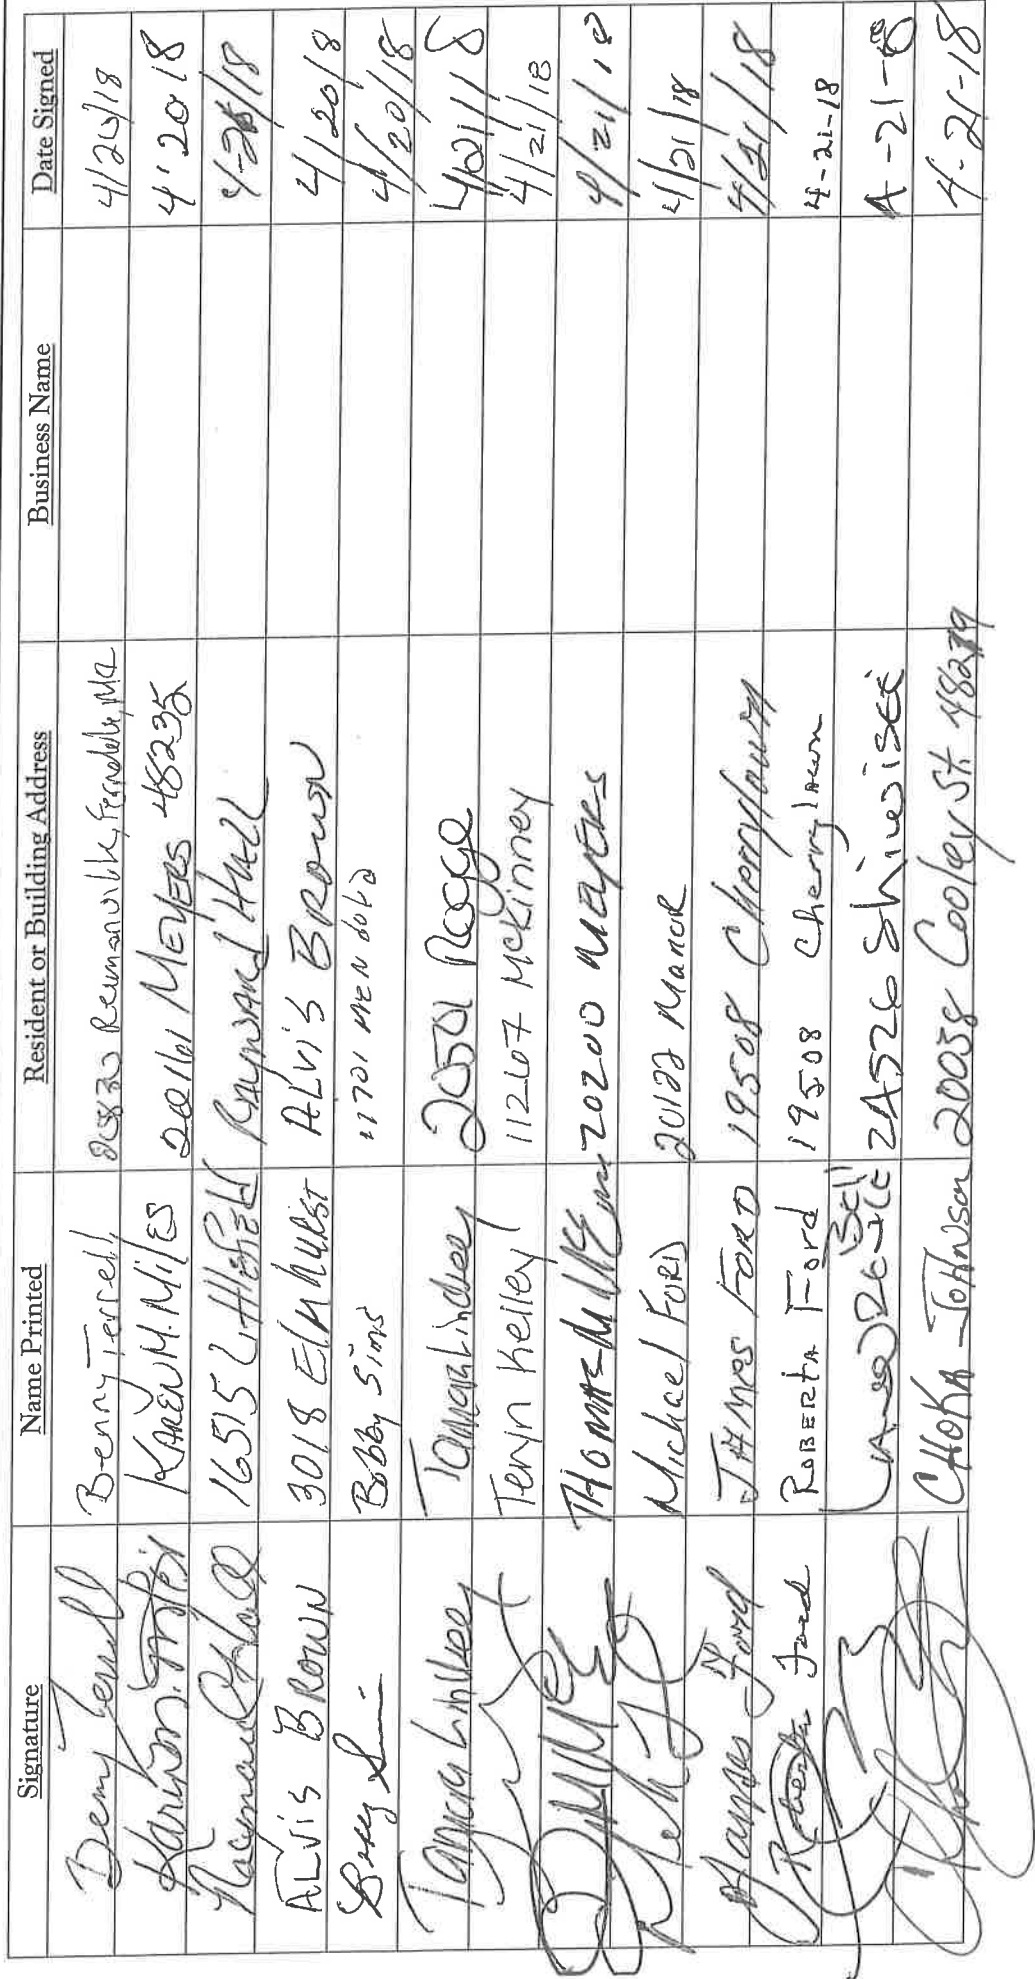 Signature Name Printed Resident or Building Address Business Name Date Signed
Benny Terrell Benny Terrell Ferndale, MI 4/20/18
Karen M. Miles KAREN M. MilES 20161 MEYERS 48235 4'20'18
Raynard Hall 16515 LHFIELD RAYNARD HALL 18
ALViS BROWN 3018 ElMhURST ALViS BROWN 4/20/18
Bobby Sims Bobby Sims 11701 MENDOTA 4/20/18
Tamara Lindsey Tamara Lindsey 20501 4/21/18
Teryn Kelley 11267 McKinney 4/21/18
THOMAS 20200 MEYERS 4/21/18
Michael FORD 20122 MANOR 4/21/18
James Ford JAMES FORD 19508 Cherrylawn 4/21/18
Roberta Ford ROBERTA Ford 19508 Cherrylawn 4-21-18
Bell 2A526 ShiawiSEE A-21-18
CHOKA JOHNSON 20038 Cooley St. 48219 4-21-18